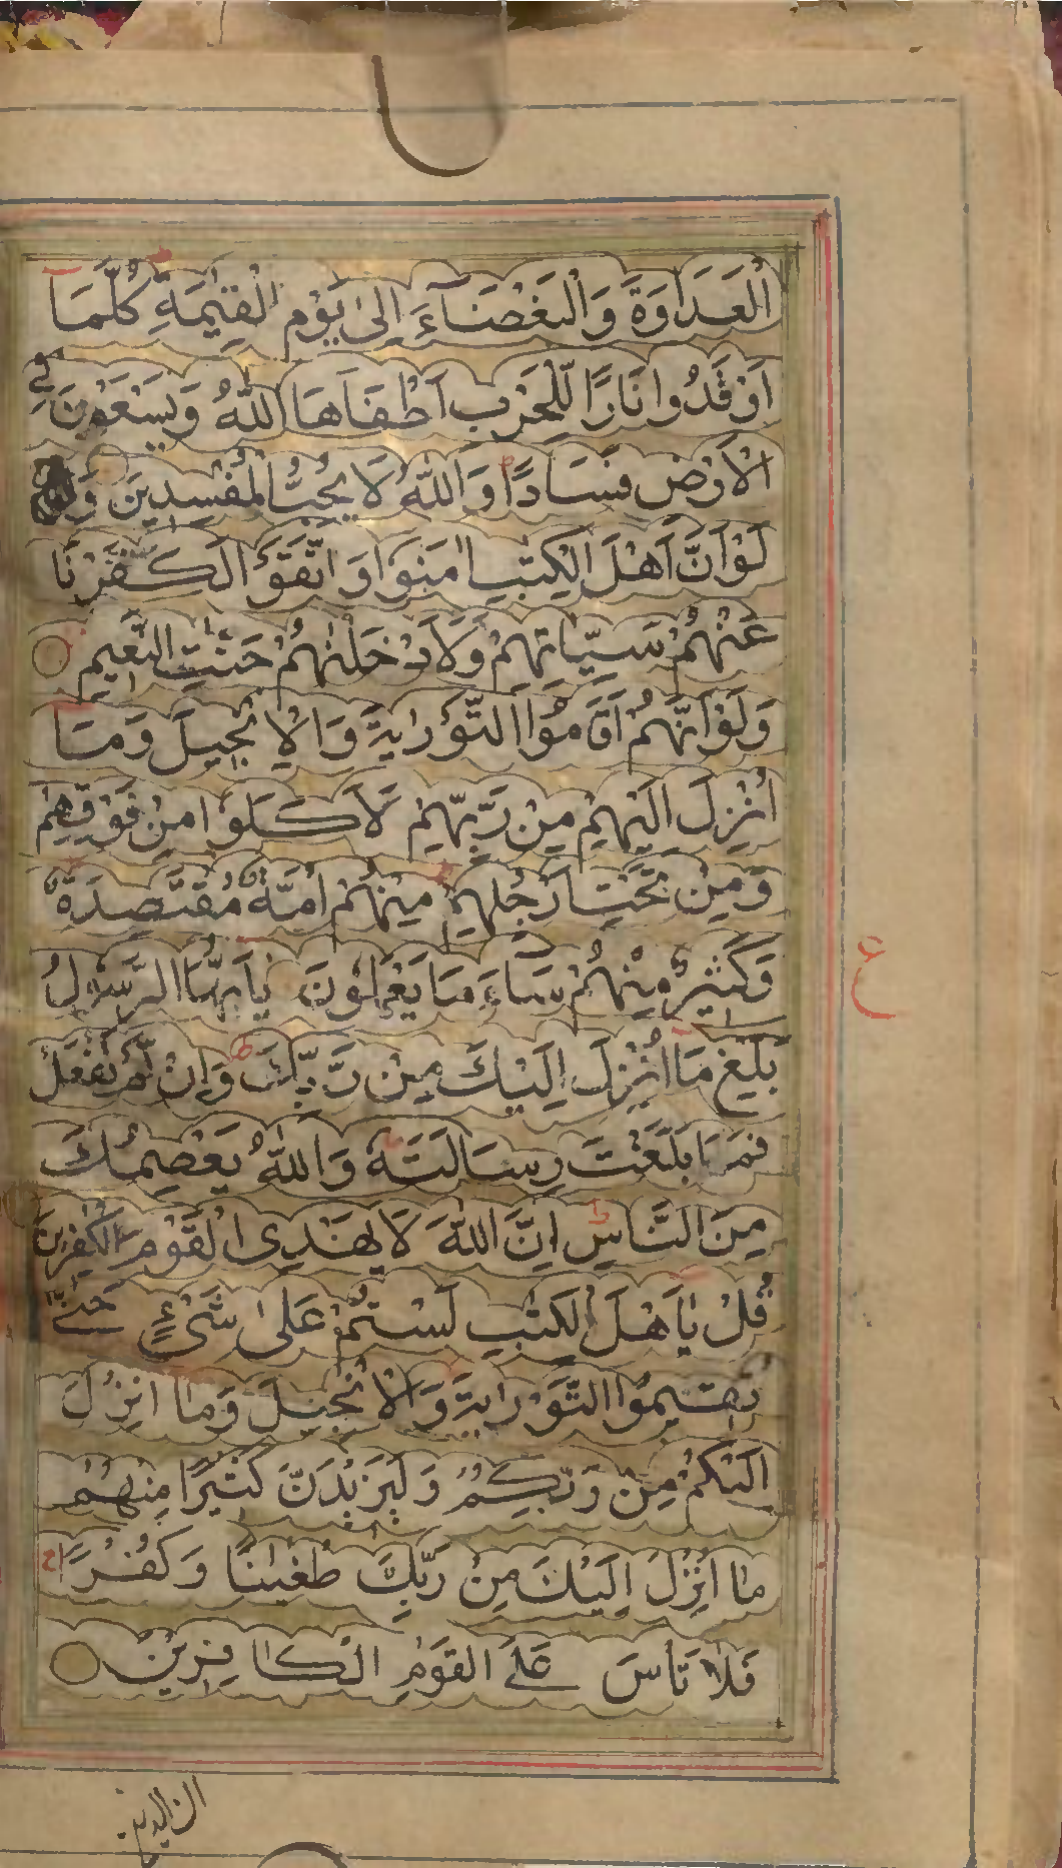 الْعَدَاوَةَ وَالْبَغْضَآءَ اِلىٰ يَوْمِ الْقِيٰمَةِ كُلَّمَا
اَوْقَدُوا نَارًا لِّلْحَرْبِ اَطْفَاَهَا اللّٰهُ وَيَسْعَوْنَ فِي
الْاَرْضِ فَسَادًا وَاللّٰهُ لَا يُحِبُّ الْمُفْسِدِينَ
لَوْ اَنَّ اَهْلَ الْكِتٰبِ اٰمَنُوْا وَ اتَّقَوْا لَكَفَّرْنَا
عَنْهُمْ سَيِّاٰتِهِمْ وَلَاَدْخَلْنٰهُمْ جَنّٰتِ النَّعِيْمِ
وَلَوْ اَنَّهُمْ اَقَامُوْا التَّوْرٰيةَ وَالْاِنْجِيْلَ وَمَا
اُنْزِلَ اِلَيْهِمْ مِنْ رَّبِّهِمْ لَاَكَلُوْا مِنْ فَوْقِهِمْ
وَمِنْ تَحْتِ اَرْجُلِهِمْ مِنْهُمْ اُمَّةٌ مُقْتَصِدَةٌ
وَكَثِيْرٌ مِنْهُمْ سَآءَ مَا يَعْمَلُوْنَ يٰاَيُّهَا الرَّسُوْلُ
بَلِّغْ مَا اُنْزِلَ اِلَيْكَ مِنْ رَّبِّكَ وَاِنْ لَّمْ تَفْعَلْ
فَمَا بَلَّغْتَ رِسَالَتَهٗ وَاللّٰهُ يَعْصِمُكَ
مِنَ النَّاسِ اِنَّ اللّٰهَ لَا يَهْدِى الْقَوْمَ الْكٰفِرِيْنَ
قُلْ يٰاَهْلَ الْكِتٰبِ لَسْتُمْ عَلىٰ شَىْءٍ حَتّٰى
تُقِيْمُوا التَّوْرٰيةَ وَالْاِنْجِيْلَ وَمَا اُنْزِلَ
اِلَيْكُمْ مِنْ رَبِّكُمْ وَلَيَزِيْدَنَّ كَثِيْرًا مِنْهُمْ
مَا اُنْزِلَ اِلَيْكَ مِنْ رَبِّكَ طُغْيٰنًا وَكُفْرًا
فَلَا تَأْسَ عَلَى الْقَوْمِ الْكَافِرِيْنَ
ع
ان الذين